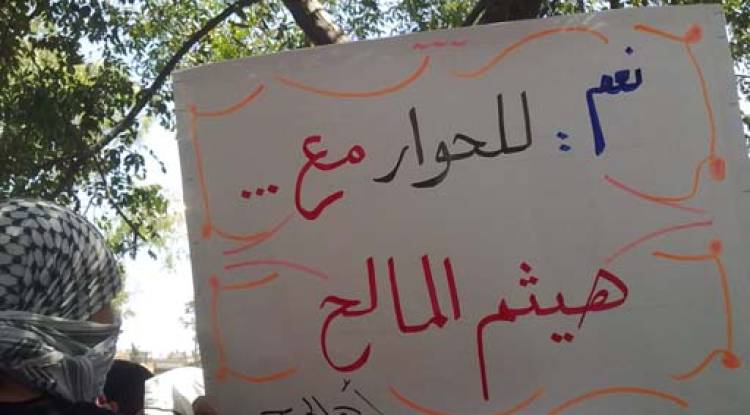 نعم : للحوار مع ...
هيثم المالح